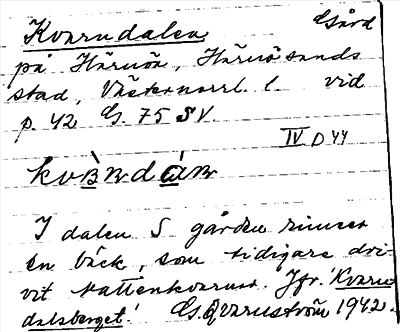 Kvarndalen Gård
på Härnön, Härnösands
stad, Västernorrl. l. vid
p. 42 G. 75 SV.
IV D 44
I dalen S gården rinner
en bäck, som tidigare dri-
vit vattenkvarnar. Jfr. Kvarn
dalsberget! G. Qvarnström 1942.